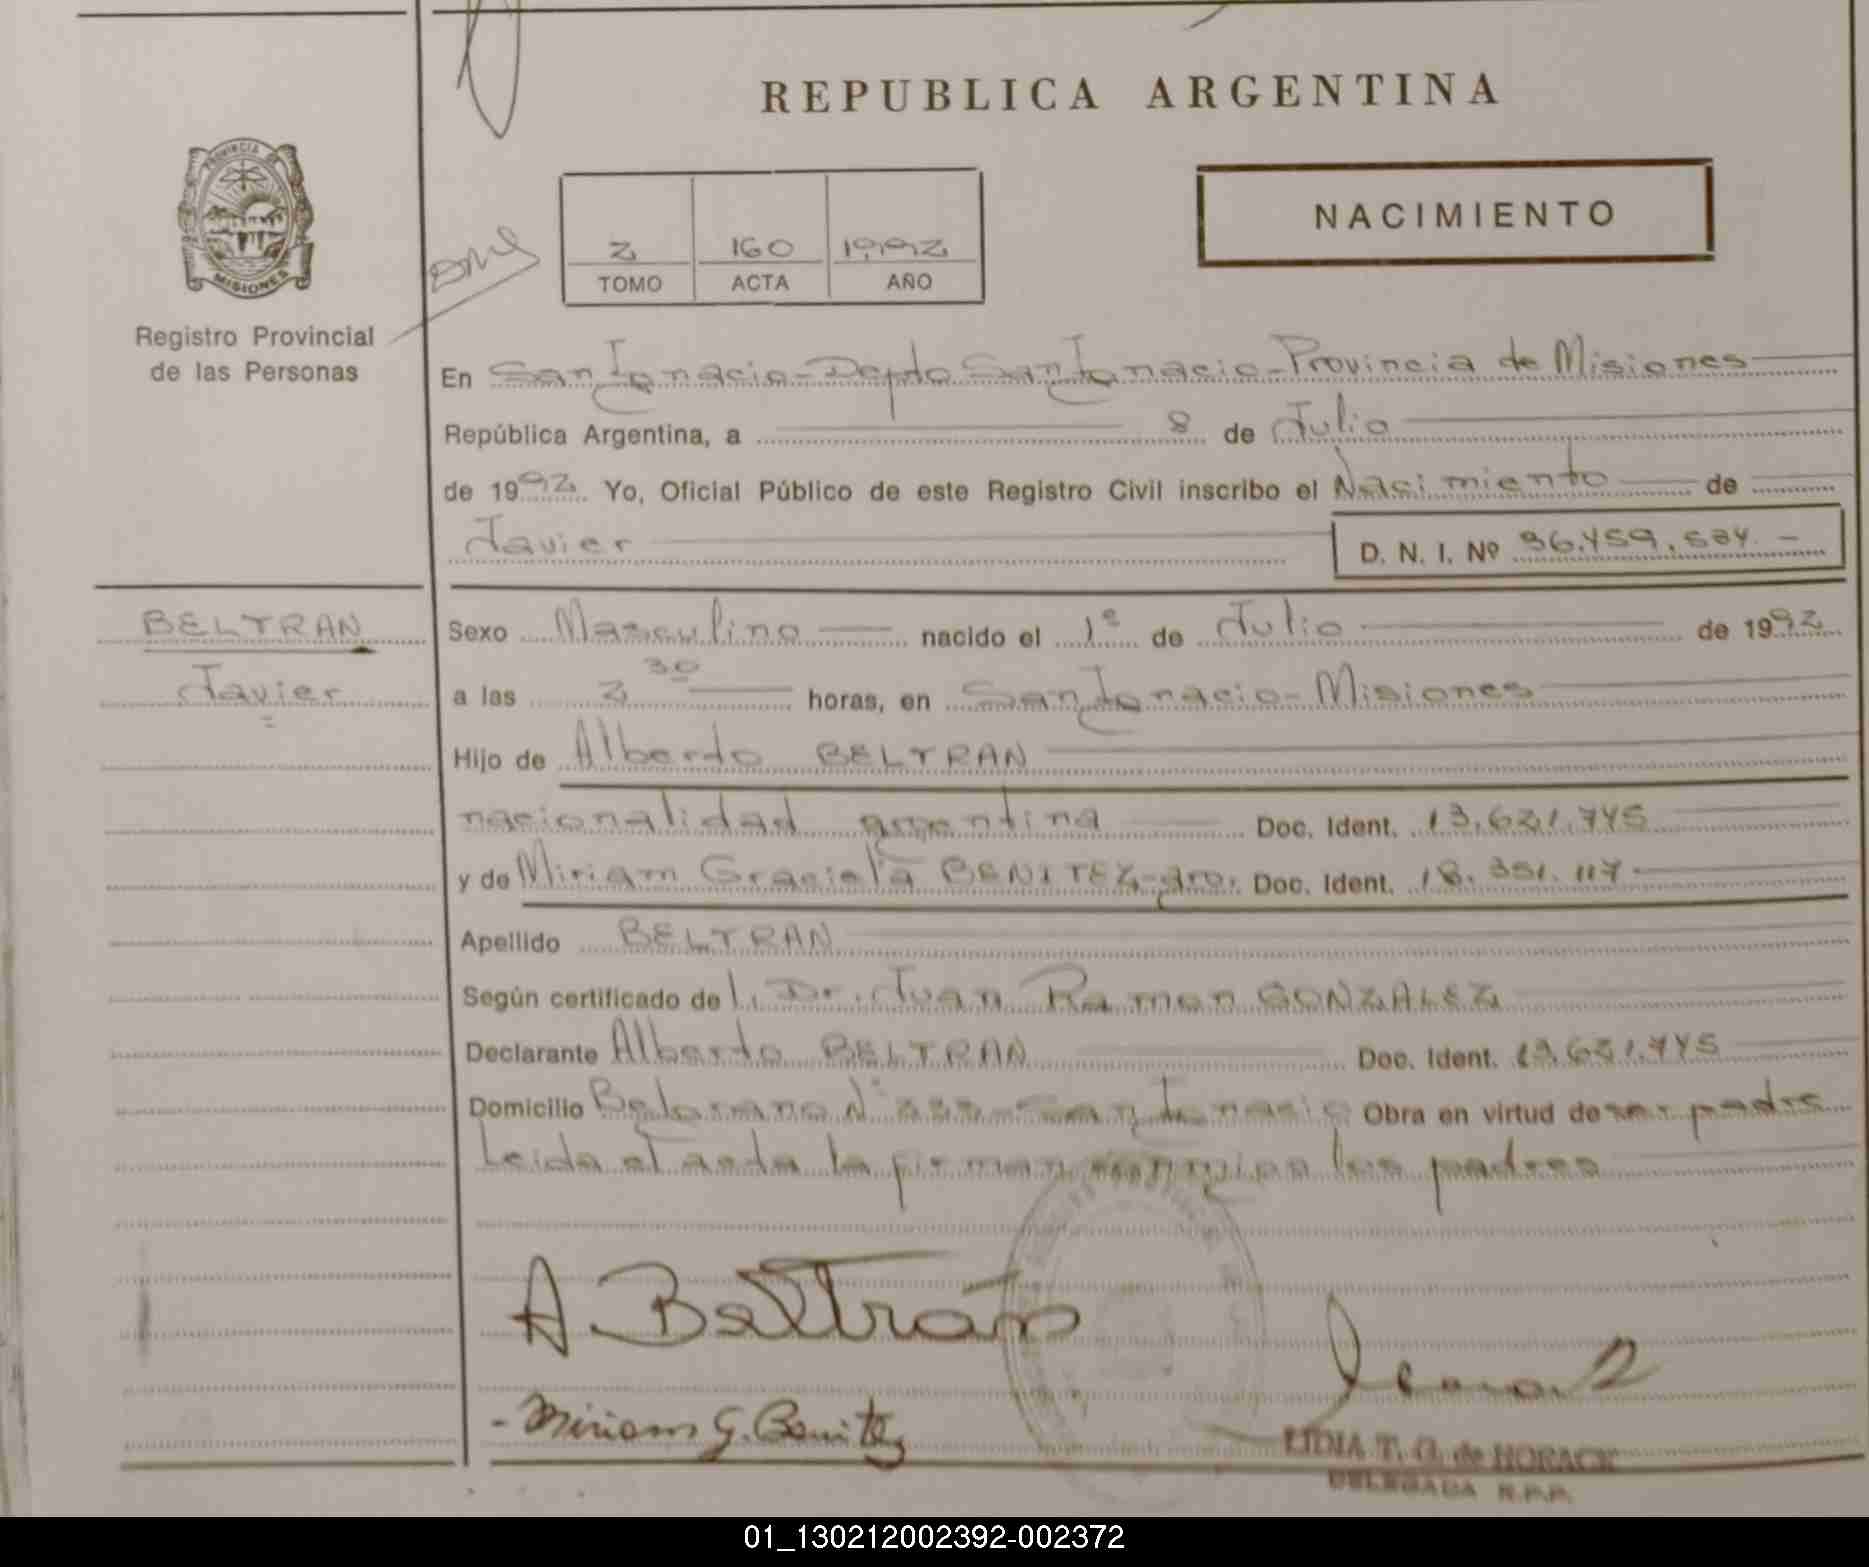 REPUBLICA ARGENTINA
PROVINCIA DE
MISIONES
Registro Provincial
de las Personas
NACIMIENTO
2 160 1992
TOMO ACTA AÑO
En San Ignacio - Depto San Ignacio - Provincia de Misiones
República Argentina, a 8 de Julio
de 1992. Yo, Oficial Público de este Registro Civil inscribo el Nasimiento de
Javier D. N. I. Nº
BELTRAN
Javier
Sexo Masculino nacido el 1º de Julio de 1992
a las 2 30 horas, en San Ignacio - Misiones
Hijo de Alberto BELTRAN
nacionalidad argentina Doc. Ident.
y de Miriam Graciela BENITEZ - Doc. Ident.
Apellido BELTRAN
Según certificado de Dr. Juan Ramon GONZALEZ
Declarante Alberto BELTRAN Doc. Ident.
Domicilio Belgrano San Ignacio Obra en virtud de ser padre
Leida el acta la firman conmigo los padres
A Beltran
- Miriam G. Benitez
LIDIA T. G. de HORACK
DELEGADA R.P.P.
01_130212002392-002372